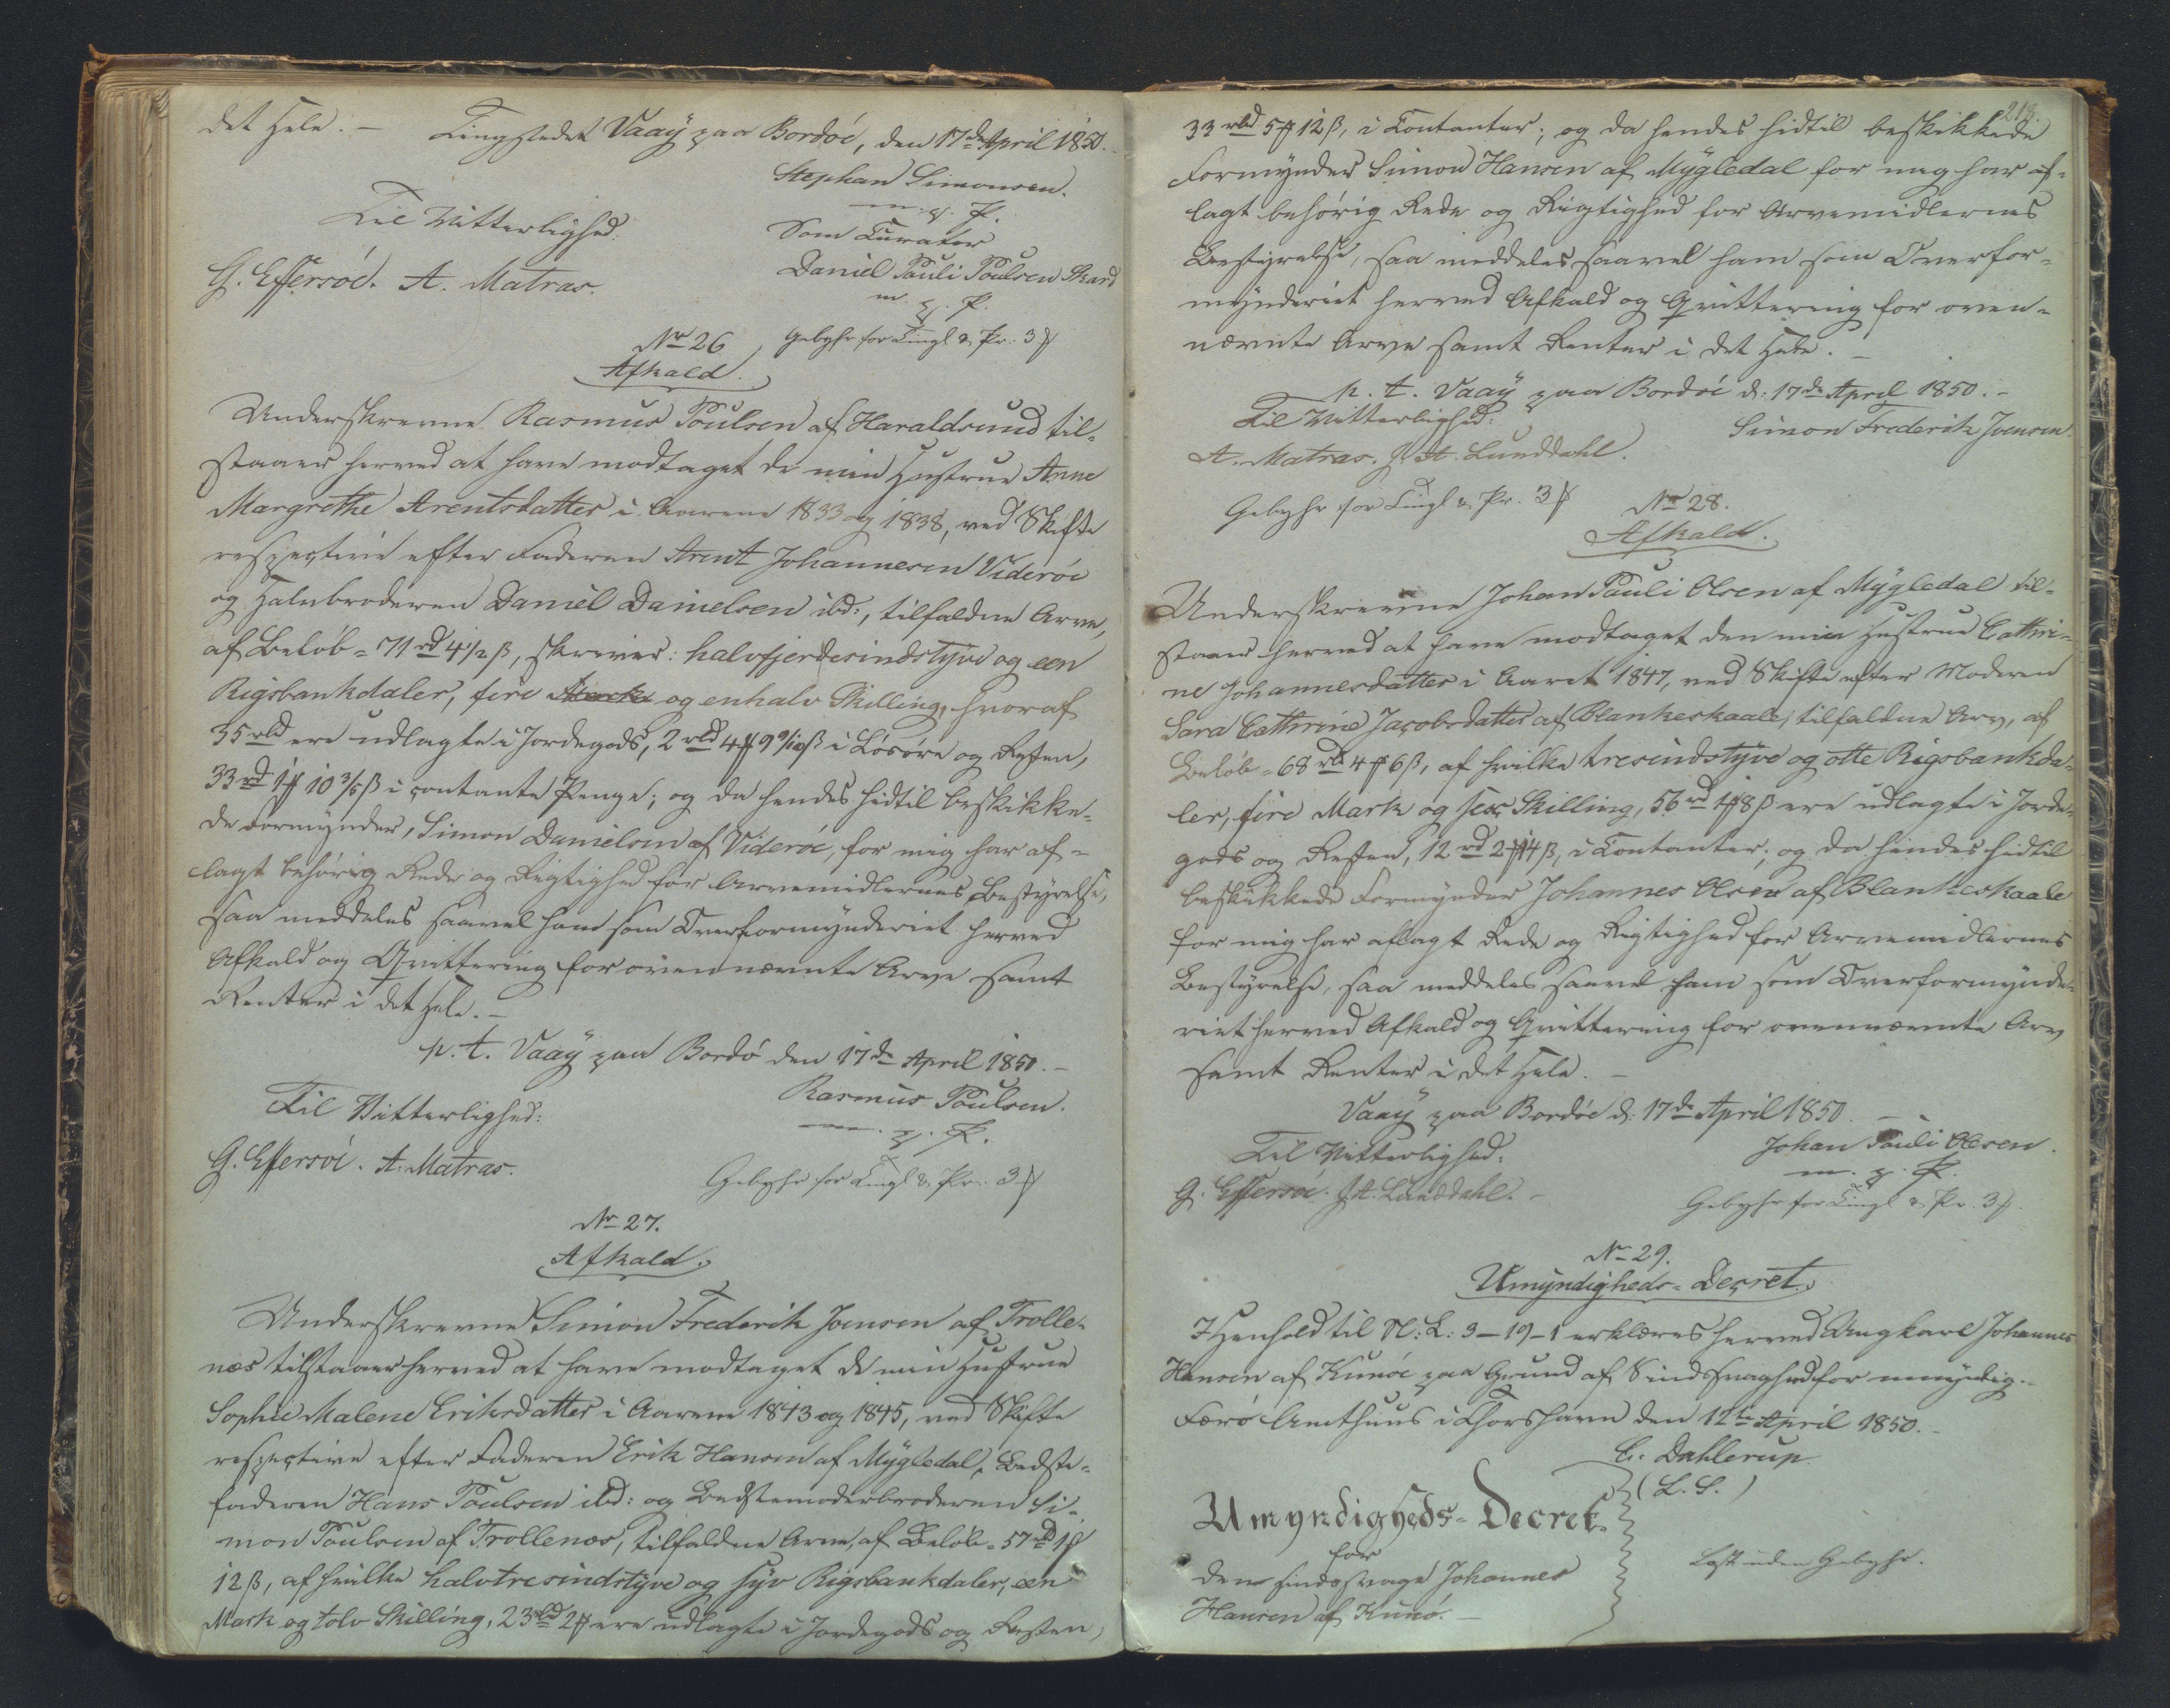 det Hele. — Tingstedet Vaaÿ paa Bordöe, den 17de April 1850.
Stephan Simonsen.
m. p. P.
Til Vitterlighed:
Som Curator
Daniel Pauli Poulsen Skard
m. p. P.
G. Effersöe. A. Matras.
No 26
Gebyhr for Tingl & Pr. 3 ℔
Afkald.
Underskrevne Rasmus Poulsen af Haraldsund til-
staaer herved at have modtaget de min Hustrue Anne
Margrethe Arentsdatter i Aarene 1833 og 1838, ved Skifte
respective efter Faderen Arent Johannesen Videröe
og Halvbroderen Daniel Danielsen ibd:, tilfaldne Arve,
af Belöb = 71 rd 4 1/2 ß, skriver: halvfjerdesindstÿve og een
Rigsbankdaler, fire Mark og enhalv Skilling, hvoraf
35 rbd ere udlagte i Jordegods, 2 rbd 4 ℔ 9 9/10 ß i Lösöre og Resten,
33 rd 1 ℔ 10 3/5 ß i contante Penge; og da hendes hidtil beskikke-
de Formynder, Simon Danielsen af Videröe, for mig har af-
lagt behörig Rede og Rigtighed for Arvemidlernes Bestyrelse,
saa meddeles saavel ham som Overformynderiet herved
Afkald og Qvittering for ovennævnte Arve samt
Renter i det Hele. —
p. t. Vaaÿ paa Bordö den 17de April 1850. —
Rasmus Poulsen.
m. p. P.
Til Vitterlighed:
G. Effersöe. A. Matras.
Gebyhr for Tingl & Pr. 3 ℔
No 27.
Afkald.
Underskrevne Simon Frederik Joensen af Trolle-
næs tilstaaer herved at have modtaget de min Hustrue
Sophie Malene Eriksdatter i Aarene 1843 og 1845, ved Skifte
respective efter Faderen Erik Hansen af Mÿgledal, Bedste-
faderen Hans Poulsen ibd: og Bedstemoderbroderen Si-
mon Poulsen af Trollenæs, tilfaldne Arve, af Belöb = 57 rbd 1 ℔
12 ß, af hvilke halvtresindstÿve og syv Rigsbankdaler, een
Mark og tolv Skilling, 23 rbd 2 ℔ ere udlagte i Jordegods og Resten,
213.
33 rbd 5 ℔ 12 ß, i Contanter; og da hendes hidtil beskikkede
Formynder Simon Hansen af Mÿgledal for mig har af-
lagt behörig Rede og Rigtighed for Arvemidlernes
Bestyrelse, saa meddeles saavel ham som Overfor-
mynderiet herved Afkald og Qvittering for oven-
nævnte Arve samt Renter i det Hele. —
p. t. Vaaÿ paa Bordöe d: 17de April 1850. —
Til Vitterlighed:
Simon Frederik Joensen.
A. Matras. J. A. Lunddahl.
Gebyhr for Tingl & Pr. 3 ℔
No 28.
Afkald.
Underskrevne Johan Pauli Olsen af Mÿgledal til-
staaer herved at have modtaget den min Hustrue Cathri-
ne Johannesdatter i Aaret 1847, ved Skifte efter Moderen
Sara Cathrine Jacobsdatter af Blankeskaale, tilfaldne Arv, af
Belöb = 68 rbd 4 ℔ 6 ß, af hvilke tresindstÿve og otte Rigsbankda-
ler, fire Mark og sex Skilling, 56 rd 1 ℔ 8 ß ere udlagte i Jorde-
gods og Resten, 12 rd 2 ℔ 14 ß, i Contanter; og da hendes hidtil
beskikkede Formynder Johannes Olsen af Blankeskaale
for mig har aflagt Rede og Rigtighed for Arvemidlernes
Bestyrelse, saa meddeles saavel ham som Overformynde-
riet herved Afkald og Qvittering for ovennævnte Arv
samt Renter i det Hele. —
Vaaÿ paa Bordöe d: 17de April 1850. —
Johan Pauli Olsen.
m. p. P.
Til Vitterlighed:
G. Effersöe. J. A. Lunddahl. —
Gebyhr for Tingl & Pr. 3 ℔.
No 29.
Umÿndigheds-Decret.
I Henhold til N: L: 3-19-1 erklæres herved Ungkarl Johannes
Hansen af Kunöe paa Grund af Sindssvaghed for umyndig. —
Færö Amthuus i Thorshavn den 12te April 1850. —
C. Dahlerup
(L. S.)
Umyndigheds-Decret.
for
den sindssvage Johannes
Hansen af Kunö. —
Læst uden Gebyhr.